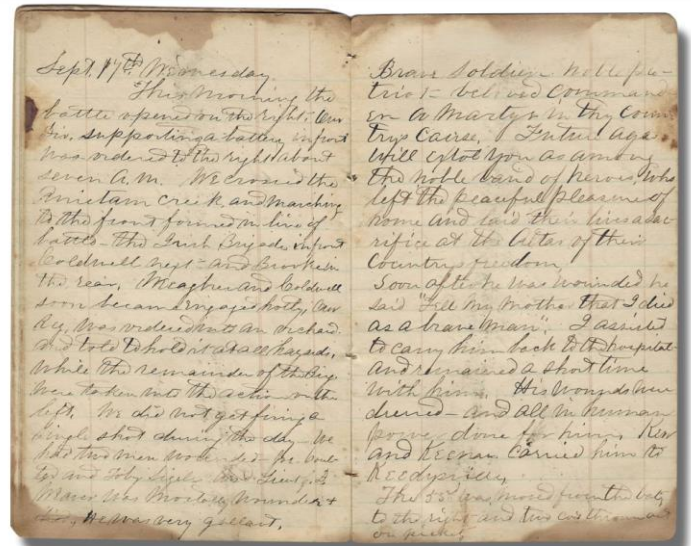 Sept. 17th Wednesday
This morning the
battle opened on the right. Our
Div. supporting a battery in front
was ordered to the right about
seven A.M. We crossed the
Antietam creek and marching
to the front formed in line of
battle - the Irish Brigade in front
Coldwell next - and Brooke in
the rear. Meagher and Coldwell
soon became engaged hotly, Our
Rg. was ordered into an orchard
and told to hold it at all hazards,
while the remainder of the Brig
were taken into the action on the
left. We did not get firing a
single shot during the day - We
had two men wounded
and Toby Sigel Lieut.
was Mortally wounded &
He was very gallant.
Brave Soldier noble pa-
triot - beloved command
er a Martyr in thy coun
trys cause, Future ages
will extol you as among
the noble band of heroes, who
left the peaceful pleasures of
home and laid their lives a sac
rifice at the Altar of their
Country freedom,
Soon after he was wounded he
said "Tell my Mother that I died
as a brave man". I assisted
to carry him back to the hospital
and remained a short time
with him. His wounds were
dressed - and all in human
power done for him,
and Keenan carried him to
Keedysville,
The 53d was moved from the
to the right and two cos thrown out
on picket,